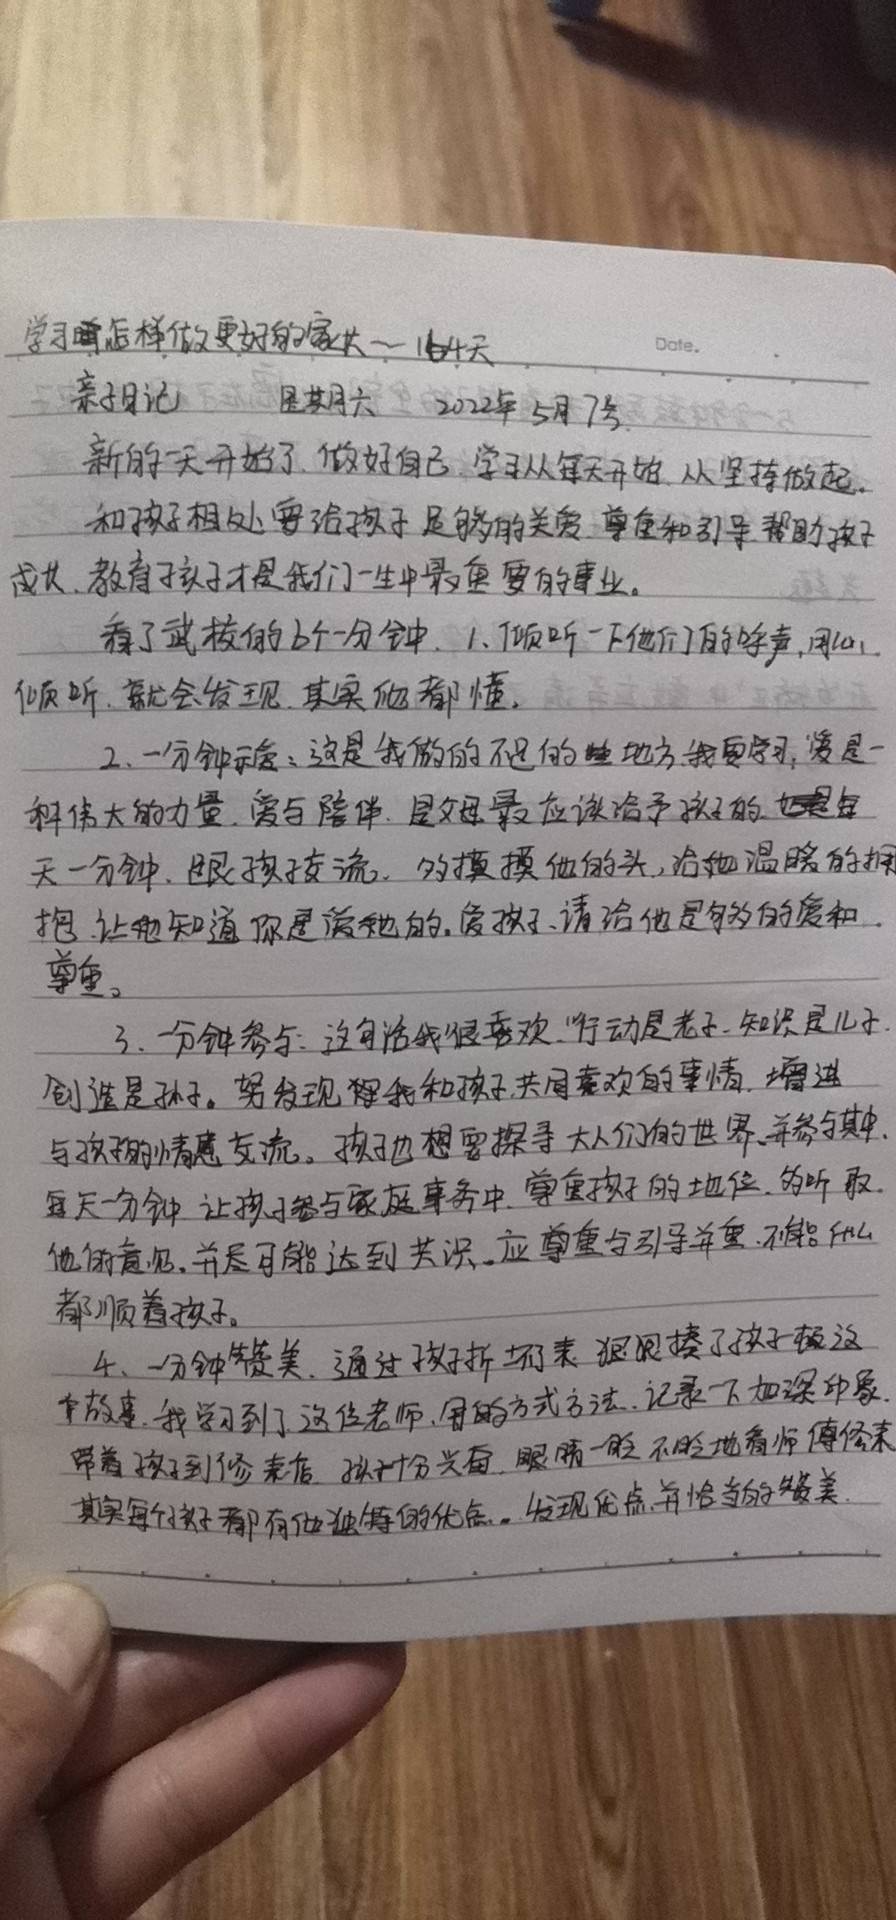 学习怎样做更好的家长～164天
Date.
亲子日记 星期六 2022年5月7号
新的一天开始了,做好自己,学习从每天开始,从坚持做起。
和孩子相处要给孩子足够的关爱,尊重和引导,帮助孩子
成长,教育孩子才是我们一生中最重要的事业。
看了武校的6个一分钟,1、倾听一下他们的呼声,用心
倾听,就会发现,其实他都懂。
2、一分钟示爱:这是我做的不足的地方,我要学习,爱是一
种伟大的力量,爱与陪伴,是父母最应该给予孩子的,每
天一分钟,跟孩子交流,多摸摸他的头,给他温暖的拥
抱,让他知道你是爱他的。爱孩子、请给他足够的爱和
尊重。
3、一分钟参与:这句话我很喜欢,"行动是老子,知识是儿子,
创造是孙子。努发现我和孩子共同喜欢的事情,增进
与孩子的情感交流。孩子也想要探寻大人们的世界,并参与其中,
每天一分钟让孩子参与家庭事务中,尊重孩子的地位,多听取
他的意见,并尽可能达到共识。应尊重与引导并重,不能什么
都顺着孩子。
4、一分钟赞美,通过孩子拆坏表狠狠揍了孩子一顿这
个故事,我学习到了这位老师,用的方式方法,记录一下加深印象,
带着孩子到修表店,孩子十分兴奋,眼睛一眨不眨地看师傅修表
其实每个孩子都有他独特的优点。发现优点,并恰当的赞美